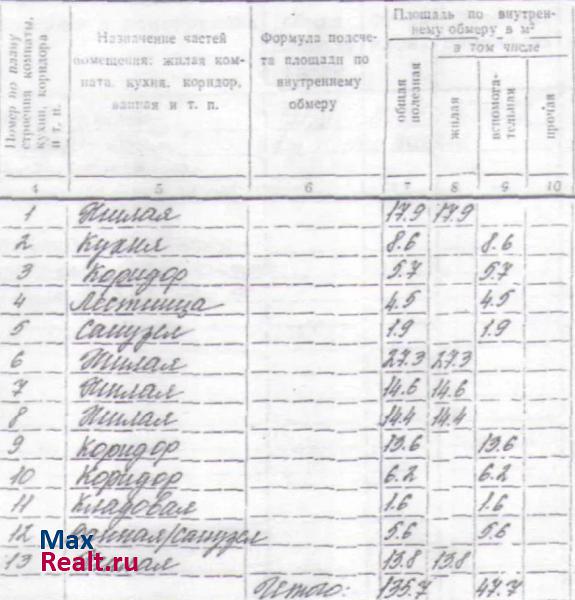 Номер по плану строения комнаты, кухни, коридора и т. п.
Назначение частей помещения: жилая комната, кухня, коридор, ванная и т. п.
Формула подсчета площади по внутреннему обмеру
Площадь по внутреннему обмеру в м²
в том числе
общая полезная
жилая
вспомогательная
прочая
4 5 6 7 8 9 10
1 Жилая 17.9 17.9
2 Кухня 8.6 8.6
3 Коридор 5.7 5.7
4 Лестница 4.5 4.5
5 Санузел 1.9 1.9
6 Жилая 27.3 27.3
7 Жилая 14.6 14.6
8 Жилая 14.4 14.4
9 Коридор 13.6 13.6
10 Коридор 6.2 6.2
11 Кладовая 1.6 1.6
12 Ванная/санузел 5.6 5.6
13 Жилая 13.8 13.8
Итого: 135.7 47.7
Max
Realt.ru